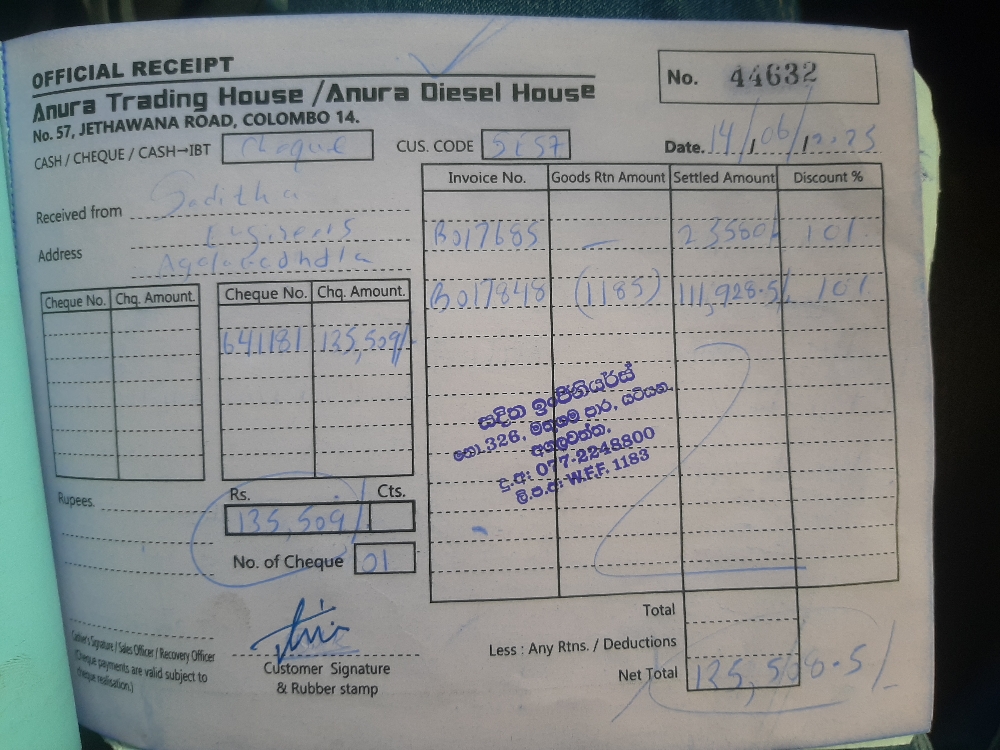 OFFICIAL RECEIPT
Anura Trading House / Anura Diesel House
No. 57, JETHAWANA ROAD, COLOMBO 14.
No. 44632
CASH / CHEQUE / CASH→IBT Cheque
CUS. CODE
Date. 14/06/2025
Received from
Address
Invoice No. Goods Rtn Amount Settled Amount Discount %
B017685 — 23580/- 10%
B017848 (1185) 111,928.5/- 10%
Cheque No. Chq. Amount. Cheque No. Chq. Amount.
641181 135,509/-
සදිත ඉංජිනියර්ස්
නො.326, මතුගම පාර, යටියන,
අගලවත්ත.
දු.අ: 077-2248800
ලි.ප.අ: W.F.F. 1183
Rupees.
Rs. Cts.
135,509/-
No. of Cheque 01
Cashier's Signature / Sales Officer / Recovery Officer
(Cheque payments are valid subject to
cheque realisation.)
Customer Signature
& Rubber stamp
Total
Less : Any Rtns. / Deductions
Net Total 135,508.5/-